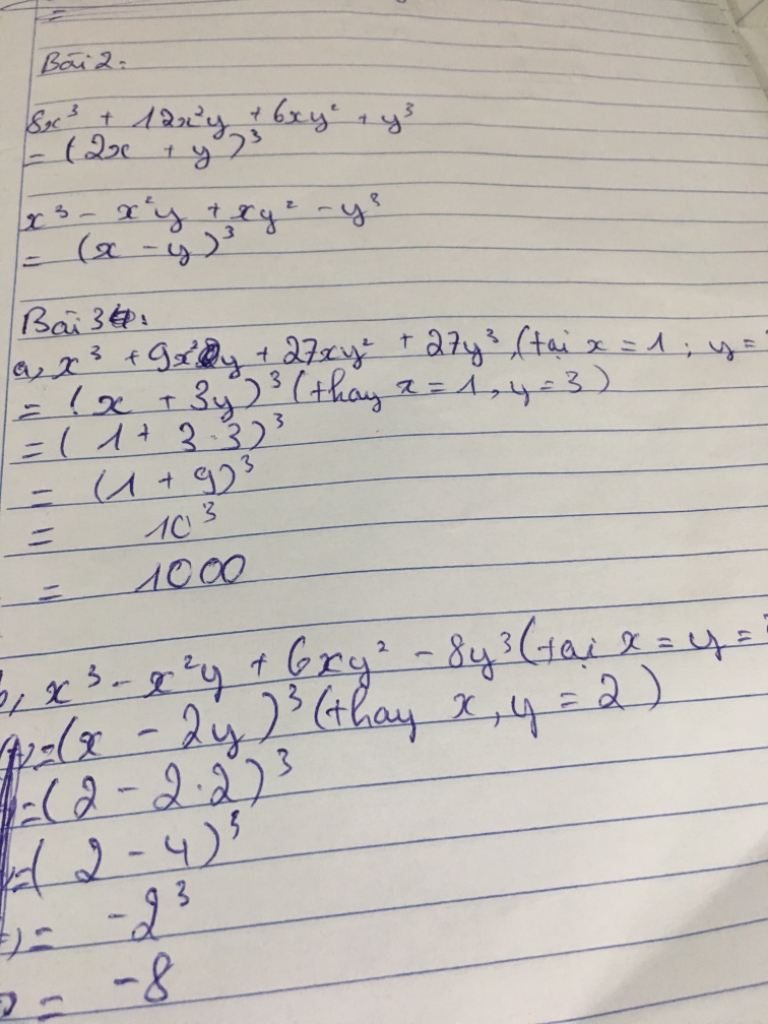 Bài 2:
8x³ + 12x²y + 6xy² + y³
= (2x + y)³
x³ - x²y + xy² - y³
= (x - y)³
Bài 3:
a, x³ + 9x²y + 27xy² + 27y³ (tại x = 1 ; y =
= (x + 3y)³ (thay x = 1, y = 3)
= (1 + 3.3)³
= (1 + 9)³
= 10³
= 1000
b, x³ - x²y + 6xy² - 8y³ (tại x = y =
= (x - 2y)³ (thay x, y = 2)
= (2 - 2.2)³
= (2 - 4)³
= -2³
= -8